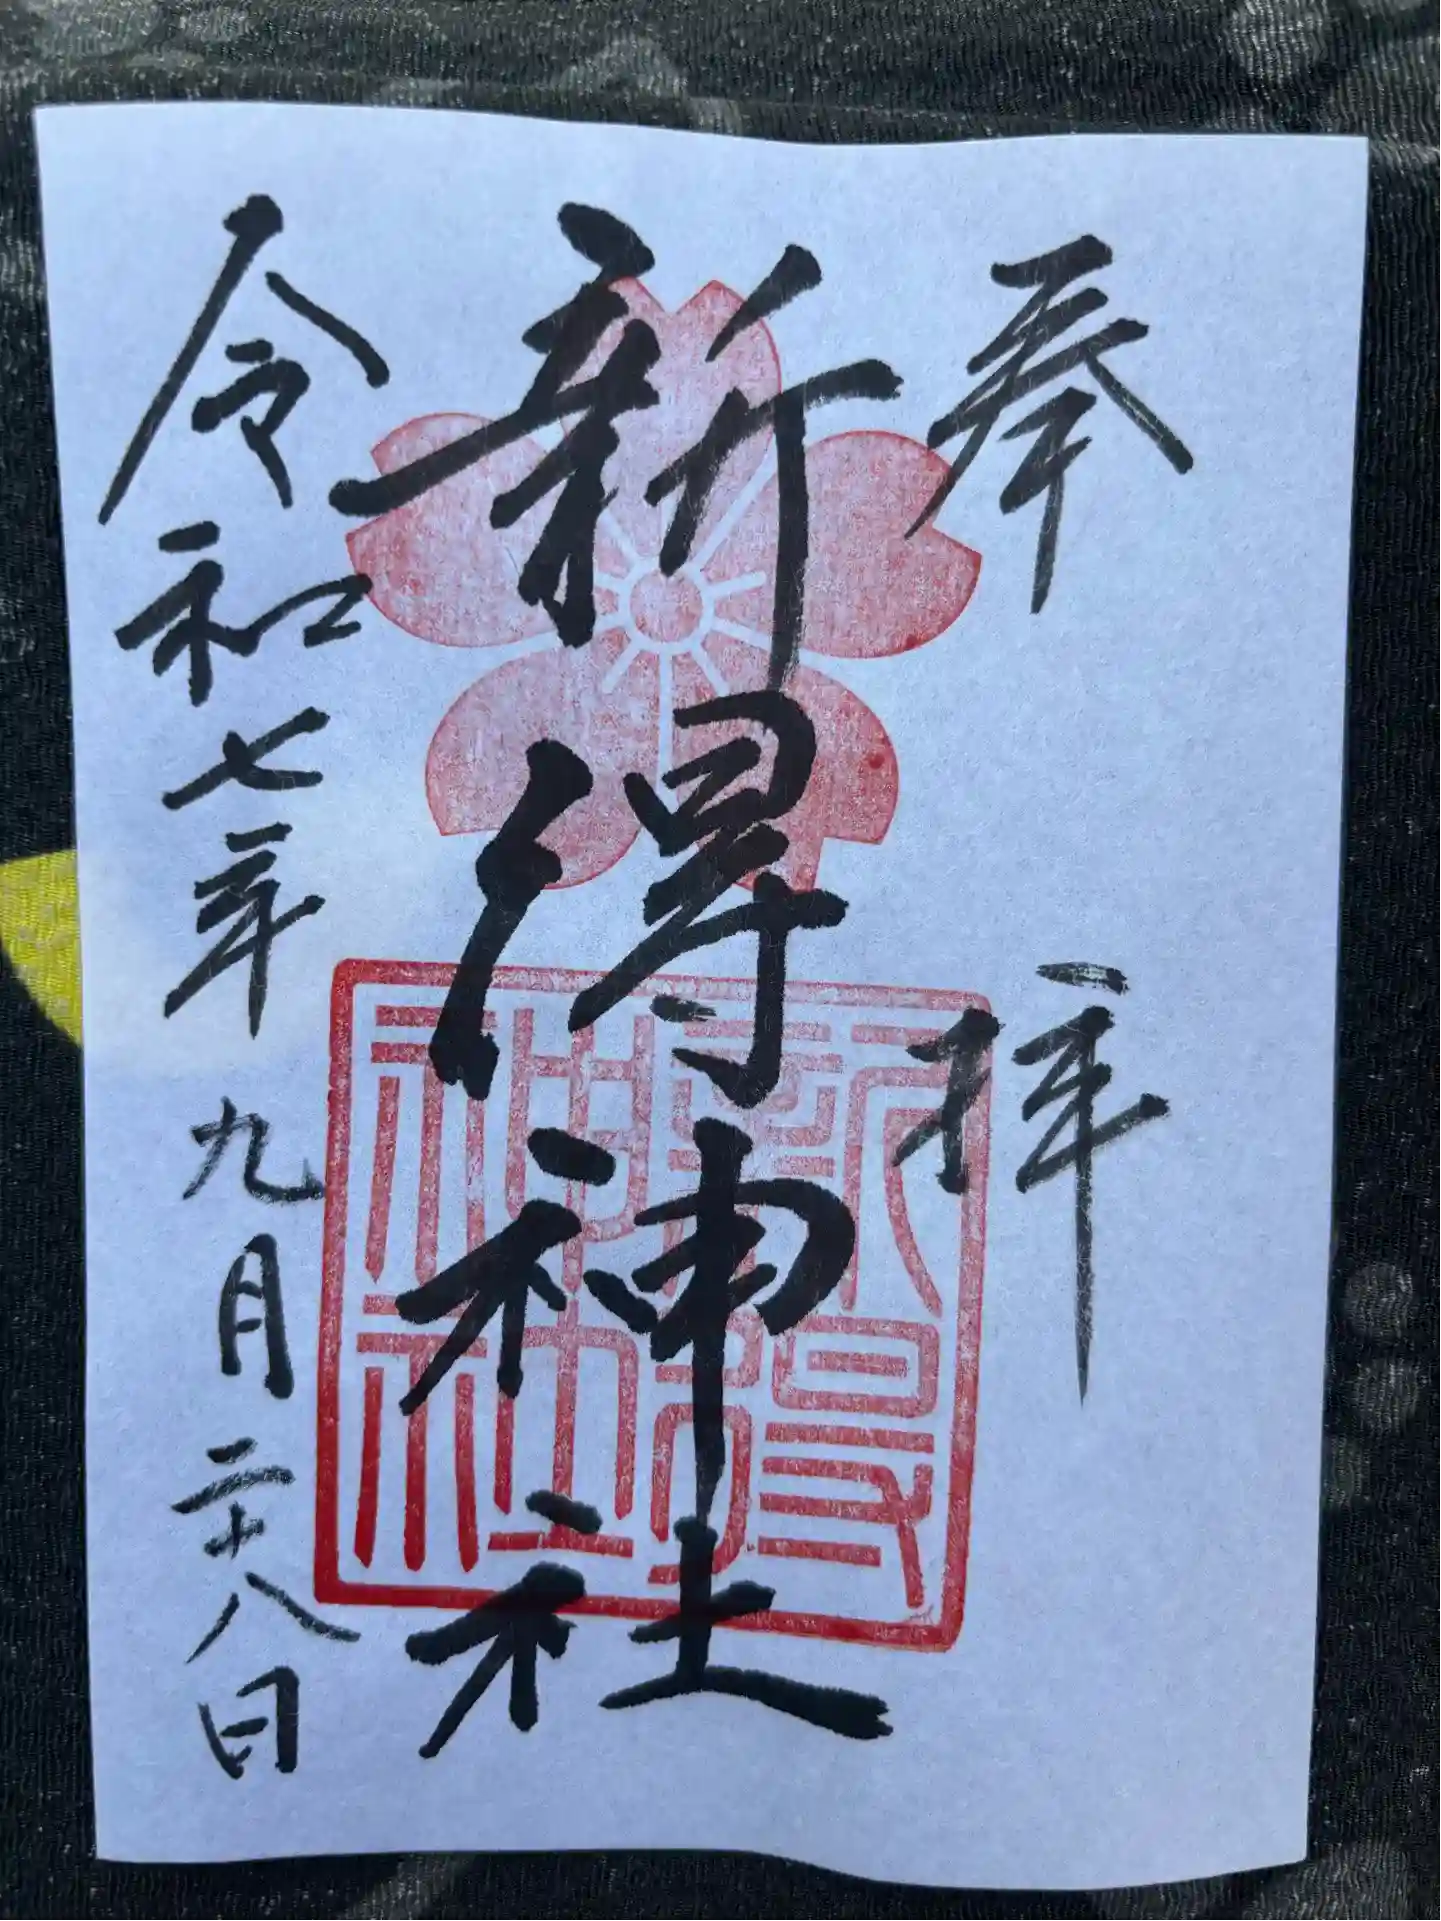 奉拝
新得神社
令和七年九月二十八日
新得
神社